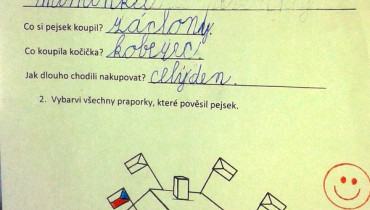 Co si pejsek koupil? záclony.
Co koupila kočička? koberec.
Jak dlouho chodili nakupovat? celý den.
2. Vybarvi všechny praporky, které pověsil pejsek.